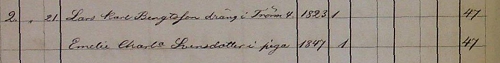 2. " 21 Lars Karl Bengtsson dräng i Tröinö 4. 1823 1 47
Emelie Charla Svensdotter i piga 1847 1 47